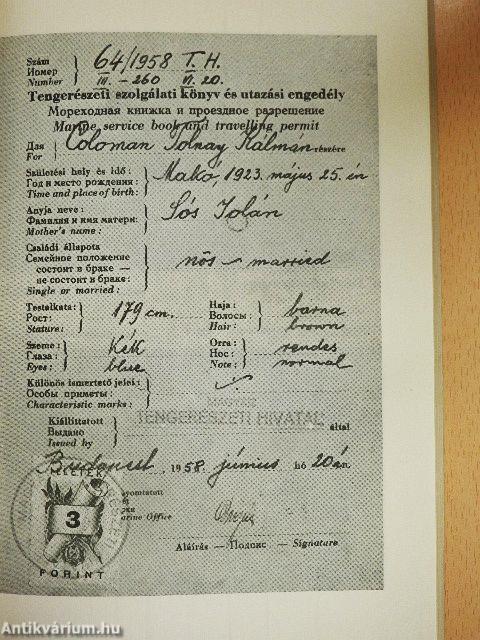 Szám
Номер
Number
64/1958 T. H.
III. -260 VI. 20.
Tengerészeti szolgálati könyv és utazási engedély
Мореходная книжка и проездное разрешение
Marine service book and travelling permit
Для
For
Coloman Tolnay Kálmán részére
Születési hely és idő:
Год и место рождения:
Time and place of birth:
Makó, 1923. május 25. én
Anyja neve:
Фамилия и имя матери:
Mother's name:
Sós Jolán
Családi állapota
Семейное положение
состоит в браке —
не состоит в браке:
Single or married:
nős — married
Testalkata:
Рост:
Stature:
179 cm.
Haja:
Волосы:
Hair:
barna
brown
Szeme:
Глаза:
Eyes:
kék
blue
Orra:
Нос:
Note:
rendes
normal
Különös ismertető jelei:
Особы приметы:
Characteristic marks:
TENGERÉSZETI HIVATAL
Kiállíttatott
Выдано
Issued by
által
Budapest, 1958. június hó 20 án.
ILLETÉK
3
FORINT
nyomtatott
arine Office
Aláírás — Подпис — Signature
Antikvárium.hu